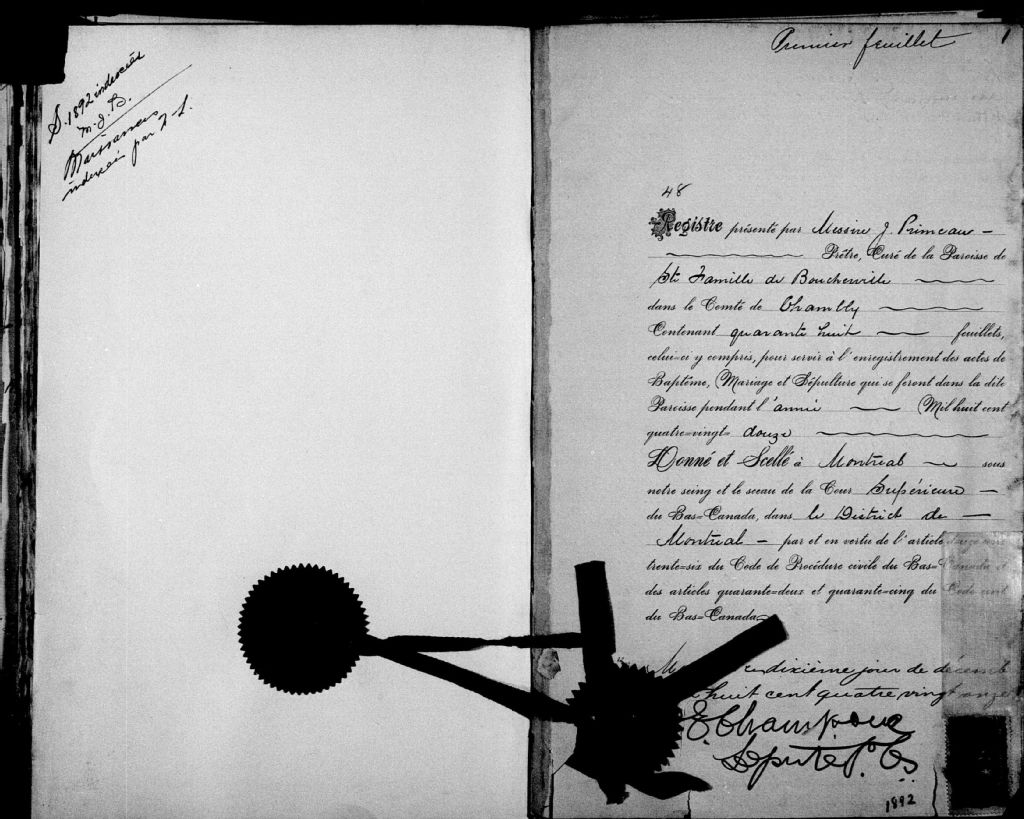 S. 1892 indexées
M. J. B.
Naissances
indexées par
Premier feuillet
1
48
Registre présenté par Messire J. Primeau
Prêtre, Curé de la Paroisse de
Ste Famille de Boucherville
dans le Comté de Chambly
Contenant quarante huit feuillets,
celui-ci y compris, pour servir à l'enregistrement des actes de
Baptême, Mariage et Sépulture qui se feront dans la dite
Paroisse pendant l'année Mil huit cent
quatre=vingt= douze
Donné et Scellé à Montréal sous
notre seing et le sceau de la Cour Supérieure
du Bas=Canada, dans le District de
Montréal par et en vertu de l'article
trente=six du Code de Procédure civile du Bas=Canada et
des articles quarante=deux et quarante=cinq du Code civil
du Bas=Canada.
dixième jour de décemb
huit cent quatre vingt onze
E. Champoux
Députe P. C. S.
1892